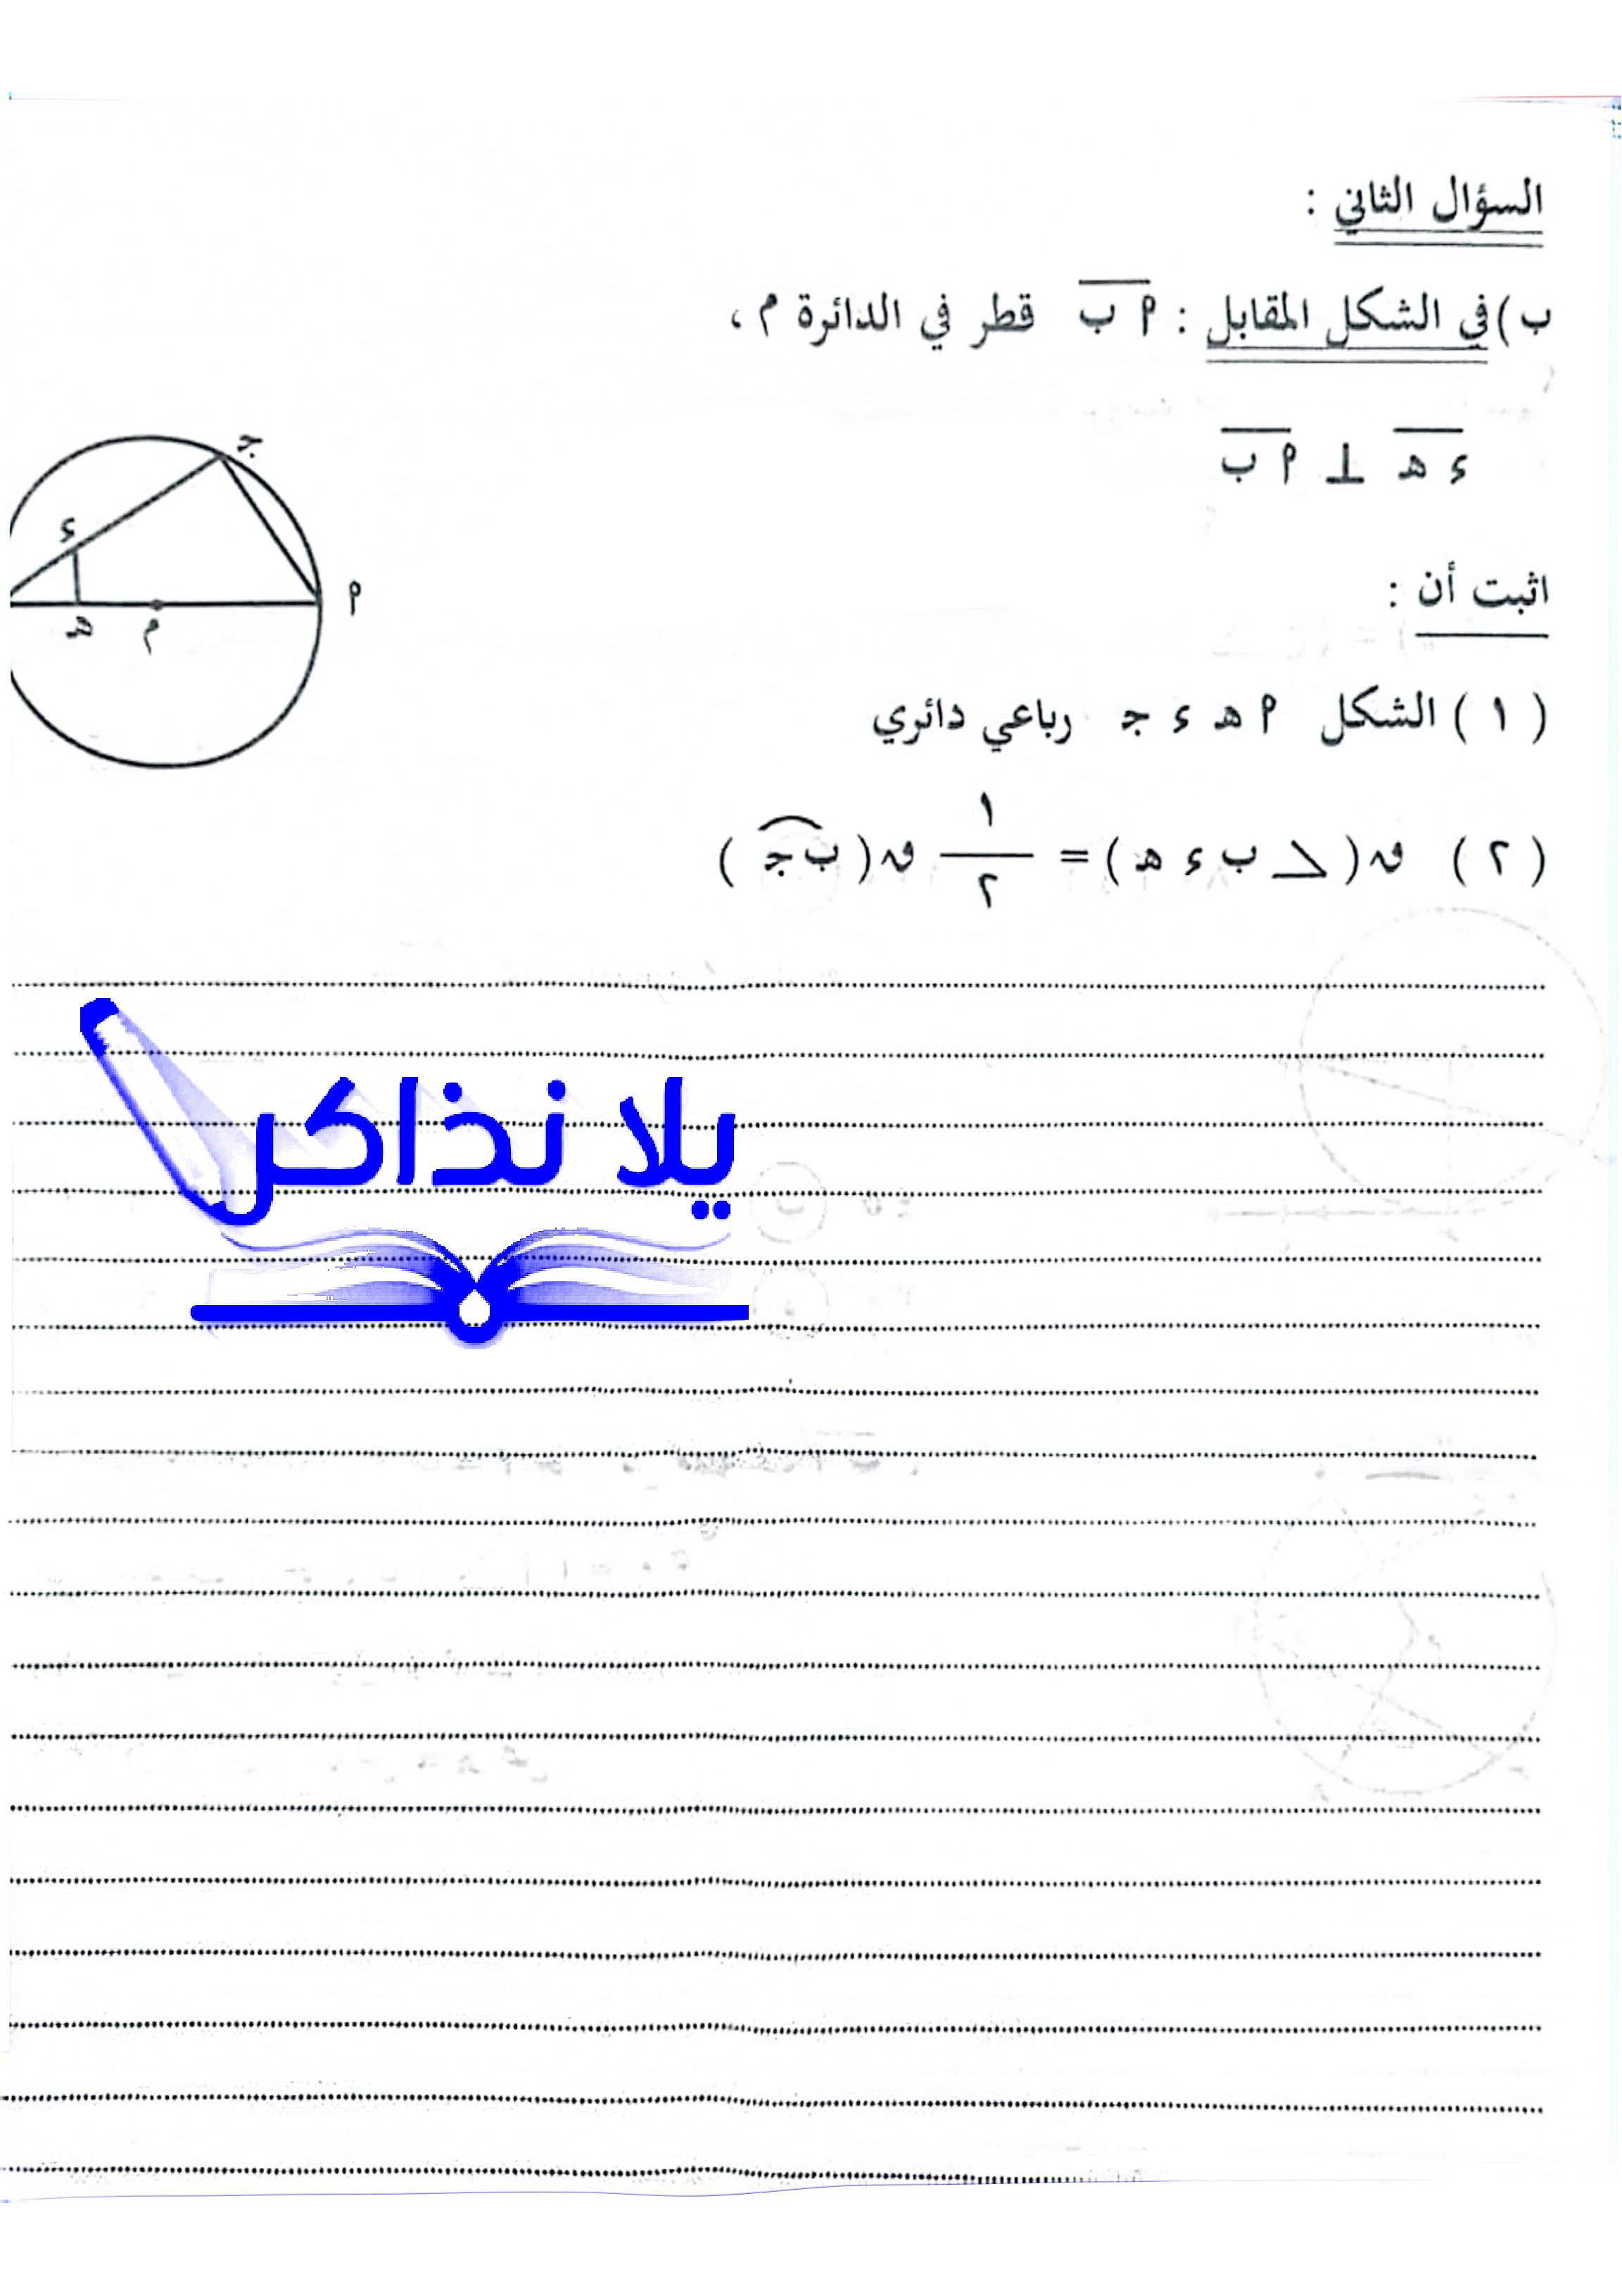 السؤال الثاني :
ب) في الشكل المقابل : م ب قطر في الدائرة م ،
ء هـ ⊥ م ب
اثبت أن :
( ١ ) الشكل م هـ ء جـ رباعي دائري
( ٢ ) ق(∠ ب ء هـ ) = ١/٢ ق( ب جـ )
جـ
ء
م
هـ
م
يلا نذاكر